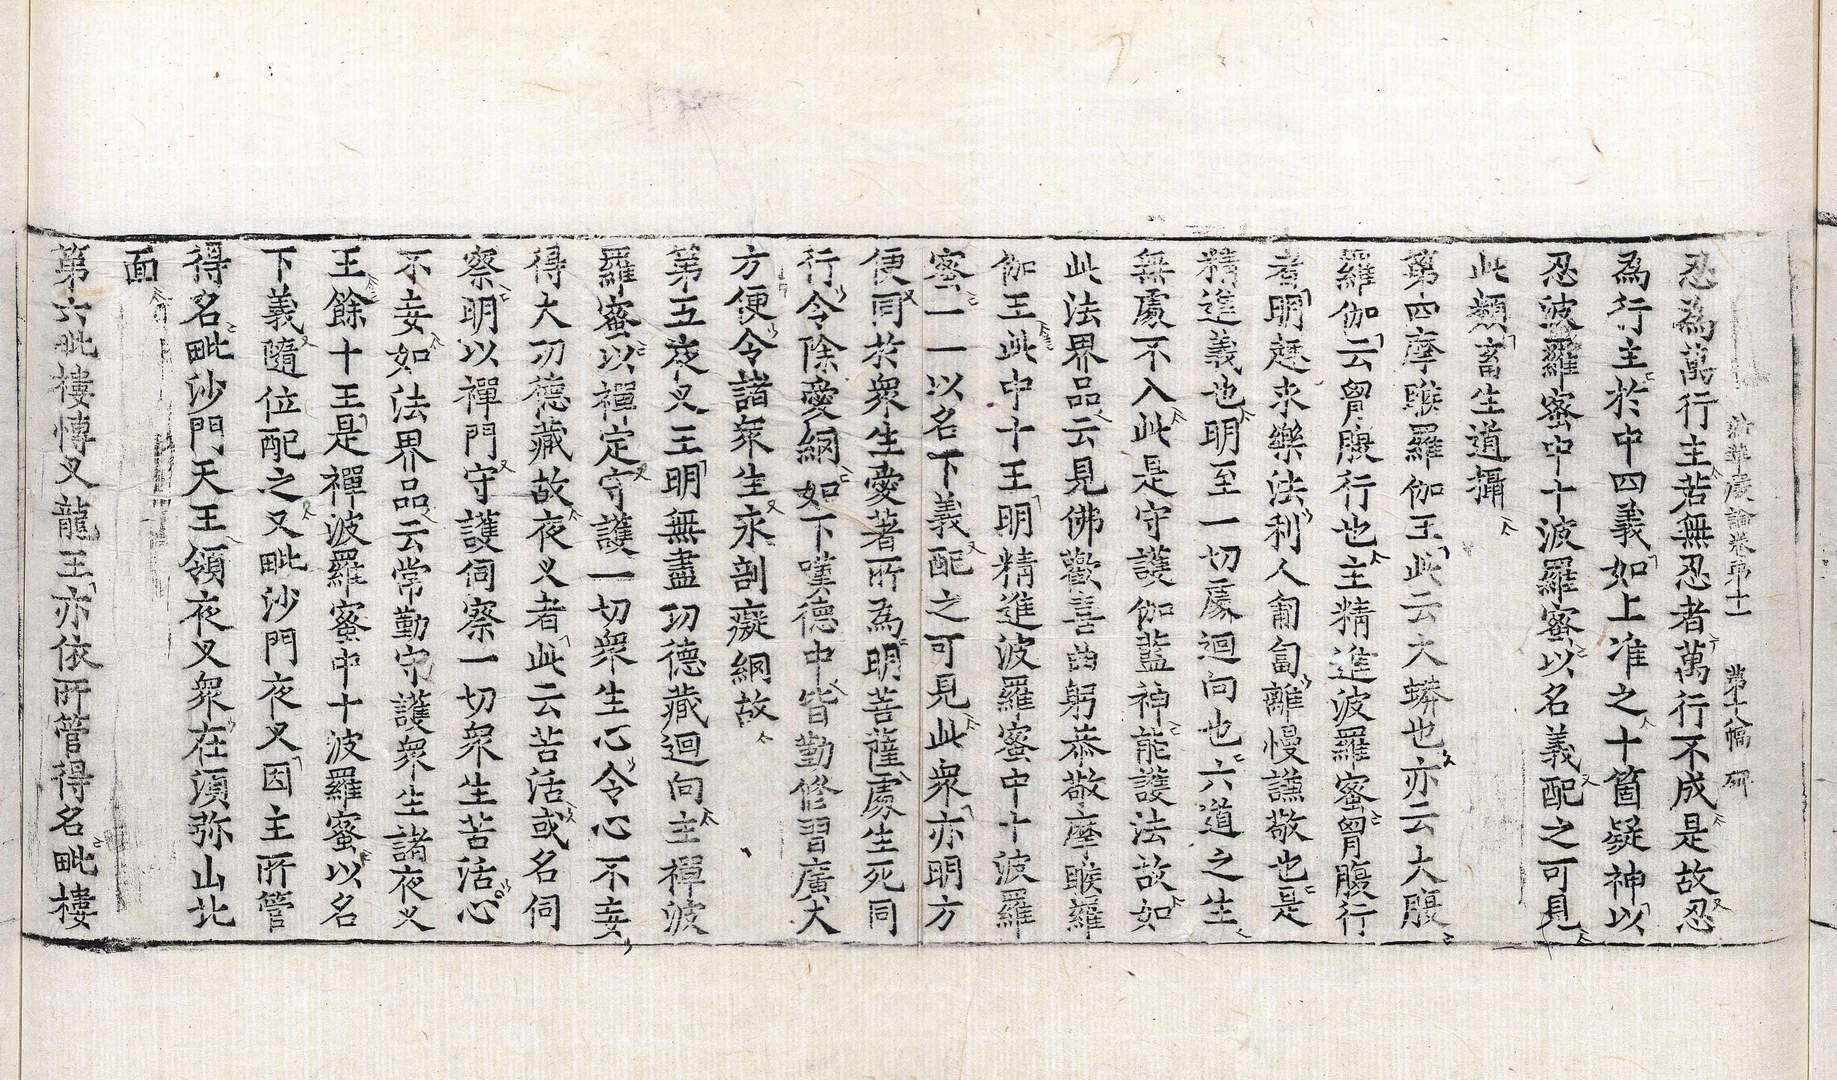 新華嚴論卷第十一 第十八幅 研
忍為萬行主若無忍者萬行不成是故忍
為行主於中四義如上准之十箇疑神以
忍波羅蜜中十波羅蜜以名義配之可見
此類畜生道攝
第四摩睺羅伽王此云大蟒也亦云大腹
羅伽云胷腹行也主精進波羅蜜胷腹行
者明趍求樂法利人匍匐離慢謙敬也是
精進義也明至一切處迴向也六道之生
無處不入此是守護伽藍神能護法故如
此法界品云見佛歡喜曲躬恭敬摩睺羅
伽王此中十王明精進波羅蜜中十波羅
蜜一一以名下義配之可見此衆亦明方
便同於衆生愛著所為明菩薩處生死同
行令除愛網如下嘆德中皆勤修習廣大
方便令諸衆生永剖癡網故
第五夜叉王明無盡功德藏迴向主禪波
羅蜜以禪定守護一切衆生心令心不妄
得大功德藏故夜叉者此云苦活或名伺
察明以禪門守護伺察一切衆生苦活心
不妄如法界品云常勤守護衆生諸夜叉
王餘十王是禪波羅蜜中十波羅蜜以名
下義隨位配之又毗沙門夜叉因主所管
得名毗沙門天王領夜叉衆在須弥山北
面
第六毗樓博叉龍王亦依所管得名毗樓